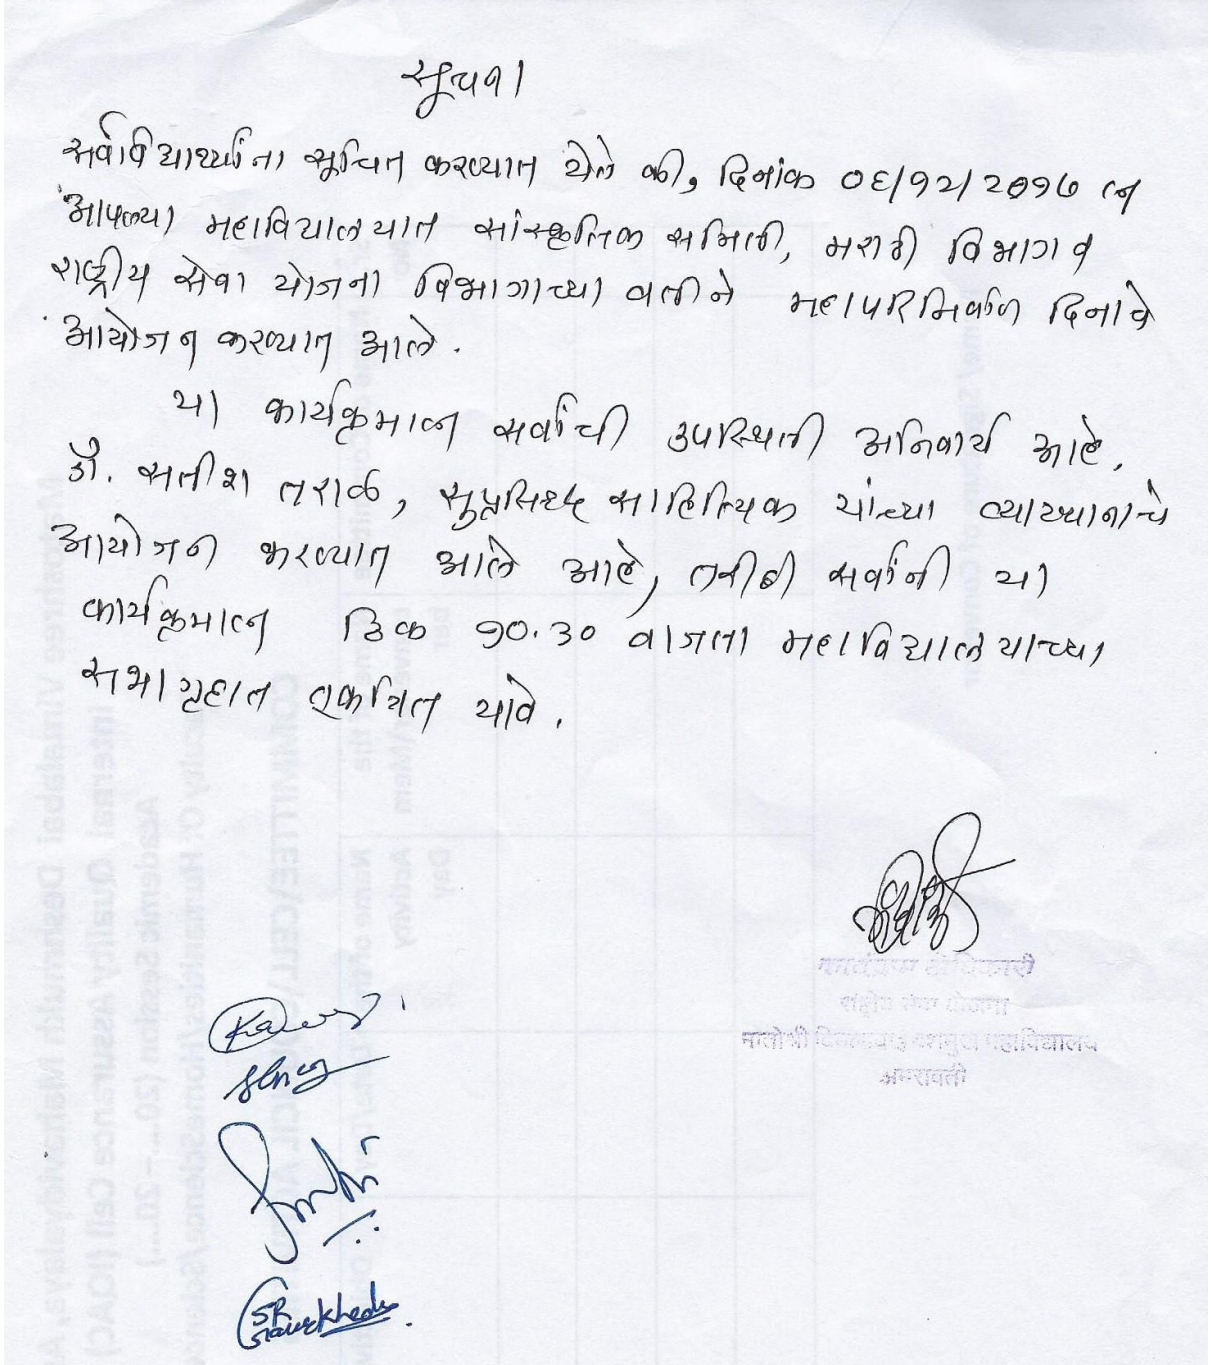 सूचना
सर्व विद्यार्थ्यांना सूचित करण्यात येते की, दिनांक ०६/१२/२०१७ ला
आपल्या महाविद्यालयात सांस्कृतिक समिती, मराठी विभाग व
राष्ट्रीय सेवा योजना विभागाच्या वतीने महापरिनिर्वाण दिनाचे
आयोजन करण्यात आले.
या कार्यक्रमाला सर्वांची उपस्थिती अनिवार्य आहे.
डॉ. सतीश तराळ, सुप्रसिध्द साहित्यिक यांच्या व्याख्यानाचे
आयोजन करण्यात आले आहे, तरीही सर्वांनी या
कार्यक्रमाला ठिक १०.३० वाजता महाविद्यालयाच्या
सभागृहात एकत्रित यावे.
कार्यक्रम अधिकारी
राष्ट्रीय सेवा योजना
मातोश्री विमलाबाई देशमुख महाविद्यालय
अमरावती